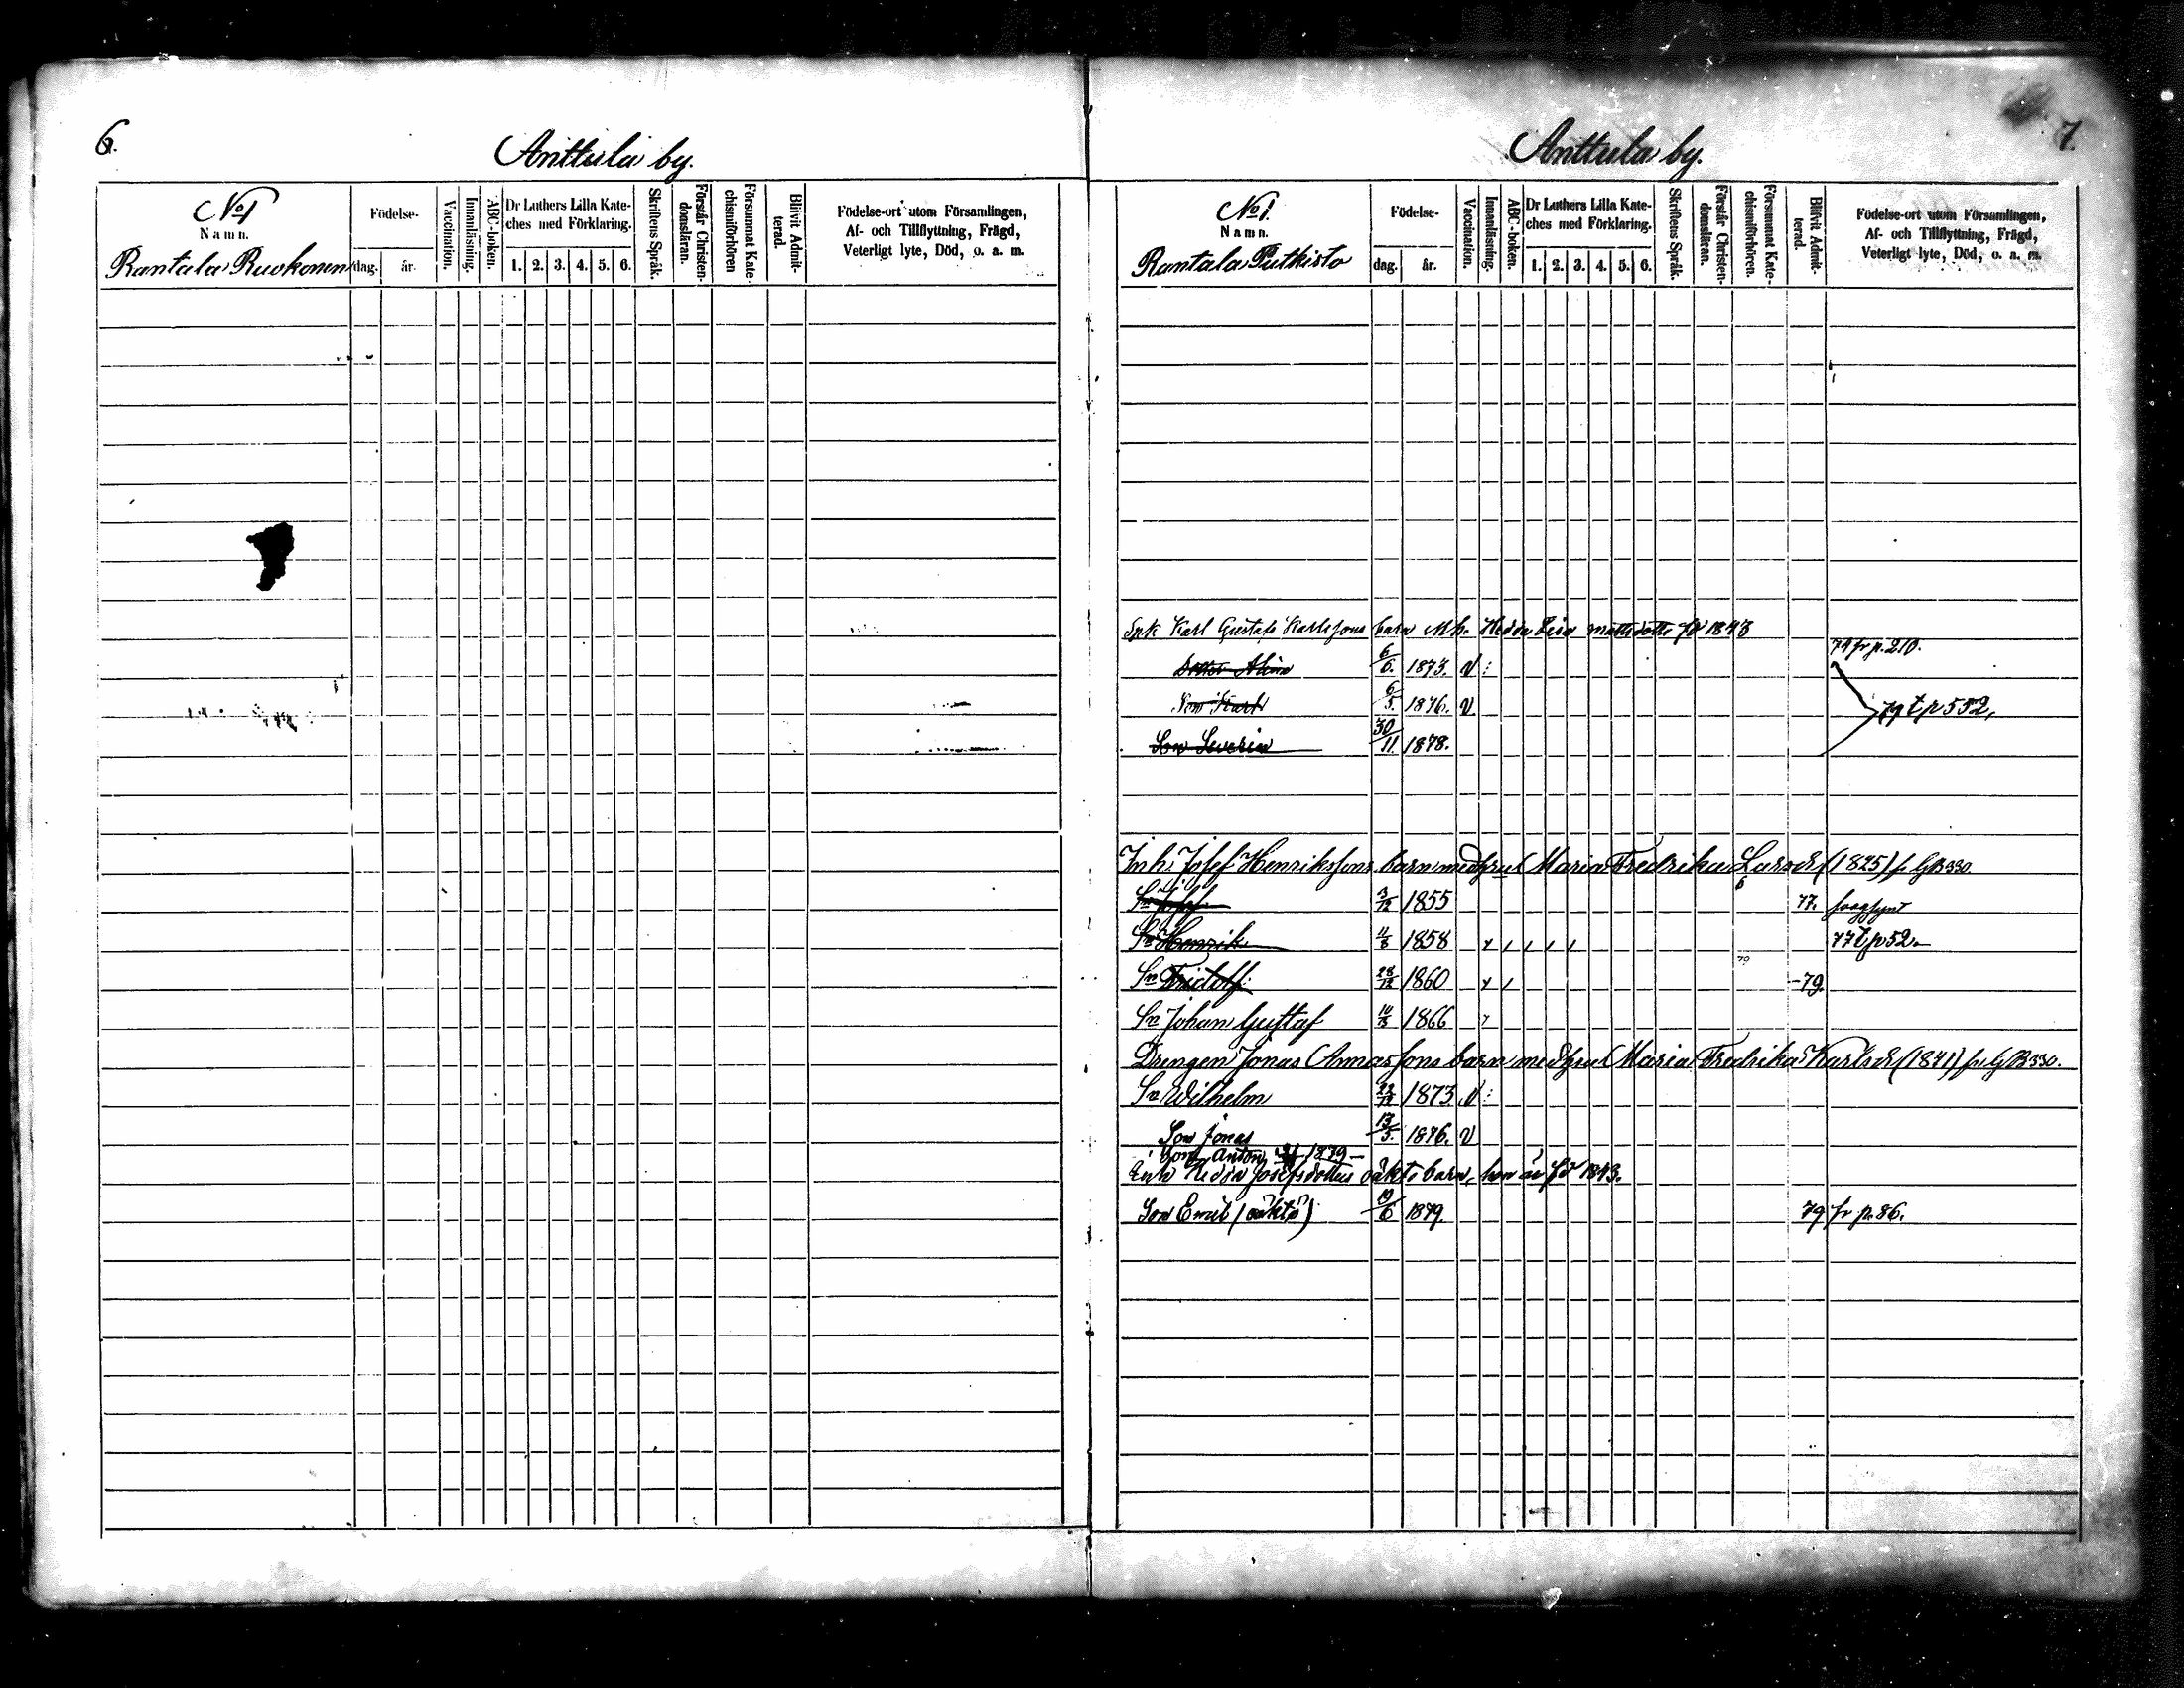 6.
Anttula by.
No 1
Namn.
Rantala Ruokonen
Födelse-
dag. år.
Vaccination.
Innanläsning.
ABC-boken.
Dr Luthers Lilla Kate-
ches med Förklaring.
1. 2. 3. 4. 5. 6.
Skriftens Språk.
Förstår Christen-
domsläran.
Försummat Kate-
chismiförhören
Blifvit Admit-
terad.
Födelse-ort utom Församlingen,
Af- och Tillflyttning, Frägd,
Veterligt lyte, Död, o. a. m.
7.
Anttula by.
No 1.
Namn.
Rantala Putkisto
Födelse-
dag. år.
Vaccination.
Innanläsning.
ABC-boken.
Dr Luthers Lilla Kate-
ches med Förklaring.
1. 2. 3. 4. 5. 6.
Skriftens Språk.
Förstår Christen-
domsläran.
Försummat Kate-
chismiförhören.
Blifvit Admit-
terad.
Födelse-ort utom Församlingen,
Af- och Tillflyttning, Frägd,
Veterligt lyte, Död, o. a. m.
Karl Gustafs Karlssons barn m h. Hedda Lisa mattsdotter fd 1843
Alina 6/6. 1873. v : 79 fr p. 210.
Son Karl 6/5. 1876. v 79 t p 552,
Son Severin 30/11 1878.
Inh. Josef Henrikssons barn med hust Maria Fredrika Larsd (1825) fr GB 330.
Sn Josef 3/12 1855 77.
Sn Henrik 11/8 1858 77 t p 52.
Sn Fridolf 28/12 1860 79 -79.
Sn Johan Gustaf 1866
Drengen Jonas Annassons barn med hust Maria Fredrika Karlsd (1841) fr GB 330.
Sn Wilhelm 22/12 1873 v :
Son Jonas 13/3. 1876. v
Son Anton 1879 -
Hedda Josefsdotters oäkta barn, hon är fd 1843.
Son Emil (oäkta) 19/6 1879. 79 fr p. 86.